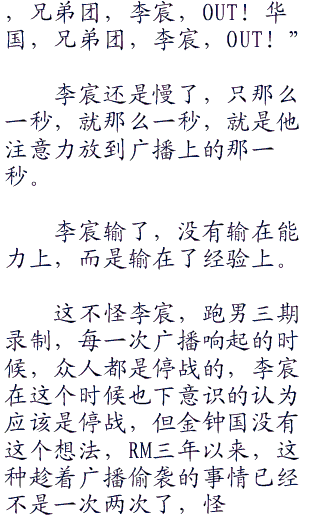 ，兄弟团，李宸，OUT！华
国，兄弟团，李宸，OUT！”
李宸还是慢了，只那么
一秒，就那么一秒，就是他
注意力放到广播上的那一
秒。
李宸输了，没有输在能
力上，而是输在了经验上。
这不怪李宸，跑男三期
录制，每一次广播响起的时
候，众人都是停战的，李宸
在这个时候也下意识的认为
应该是停战，但金钟国没有
这个想法，RM三年以来，这
种趁着广播偷袭的事情已经
不是一次两次了，怪